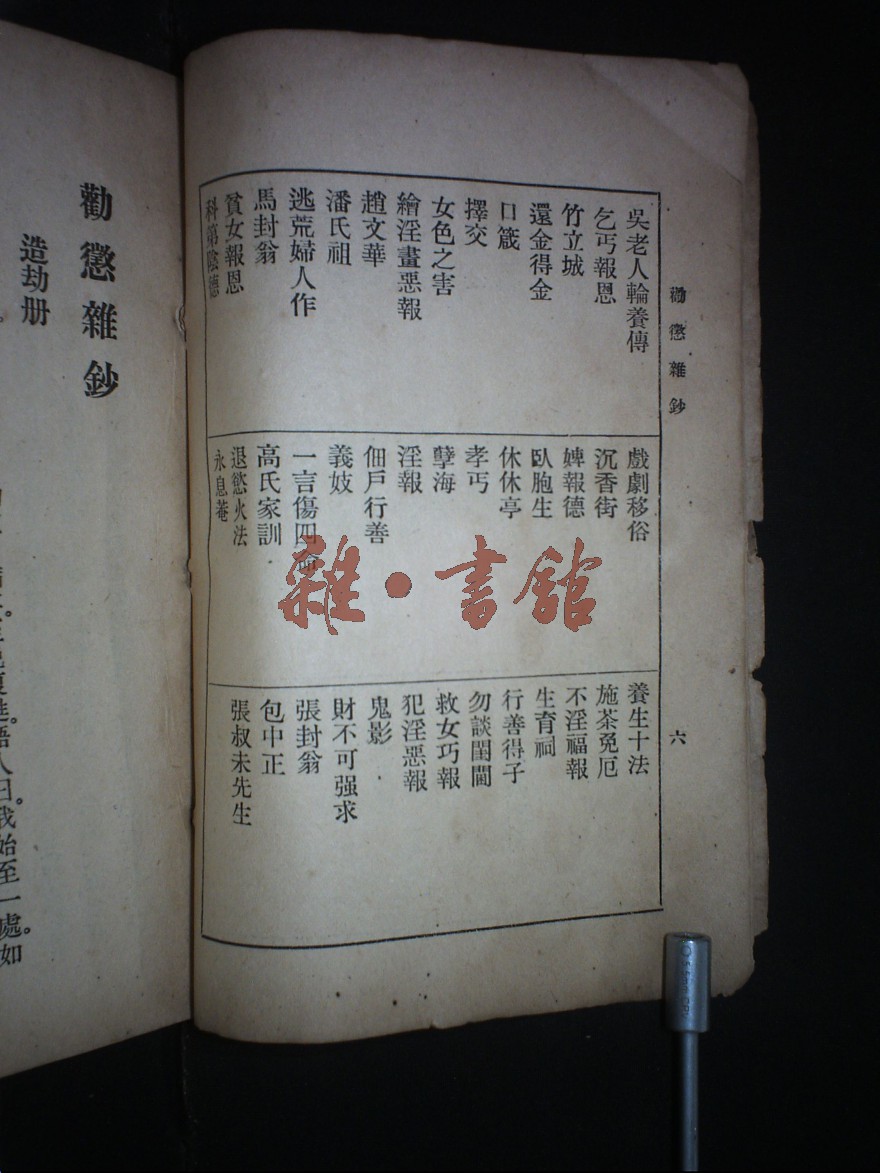 勸懲雜鈔
六
吳老人輪養傳
乞丐報恩
竹立城
還金得金
口箴
擇交
女色之害
繪淫畫惡報
趙文華
潘氏祖
逃荒婦人作
馬封翁
貧女報恩
科第陰德
戲劇移俗
沉香街
婢報德
臥胞生
休休亭
孝丐
孽海
淫報
佃戶行善
義妓
一言傷四命
高氏家訓
退慾火法
永息菴
養生十法
施茶免厄
不淫福報
生育祠
行善得子
勿談閨閫
救女巧報
犯淫惡報
鬼影
財不可强求
張封翁
包中正
張叔未先生
雜·書館
勸懲雜鈔
造劫册
我始至一處。如